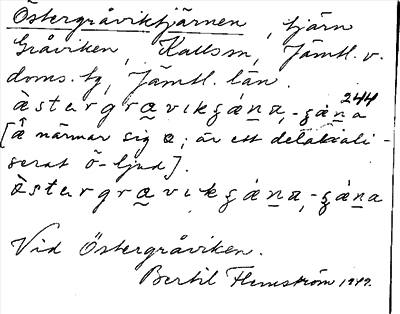 Östergråviktjärnen, tjärn
Gråviken, Kallsm, Jämtl. v.
doms. tg, Jämtl. län.
244
àstərgrævikʒánɑ, -ʒánɑ
[å närmar sig ɑ; är ett delabiali-
serat ö-ljud].
àstərgrævikʒánɑ, -ʒánɑ
Vid Östergråviken.
Bertil Flemström 1949.